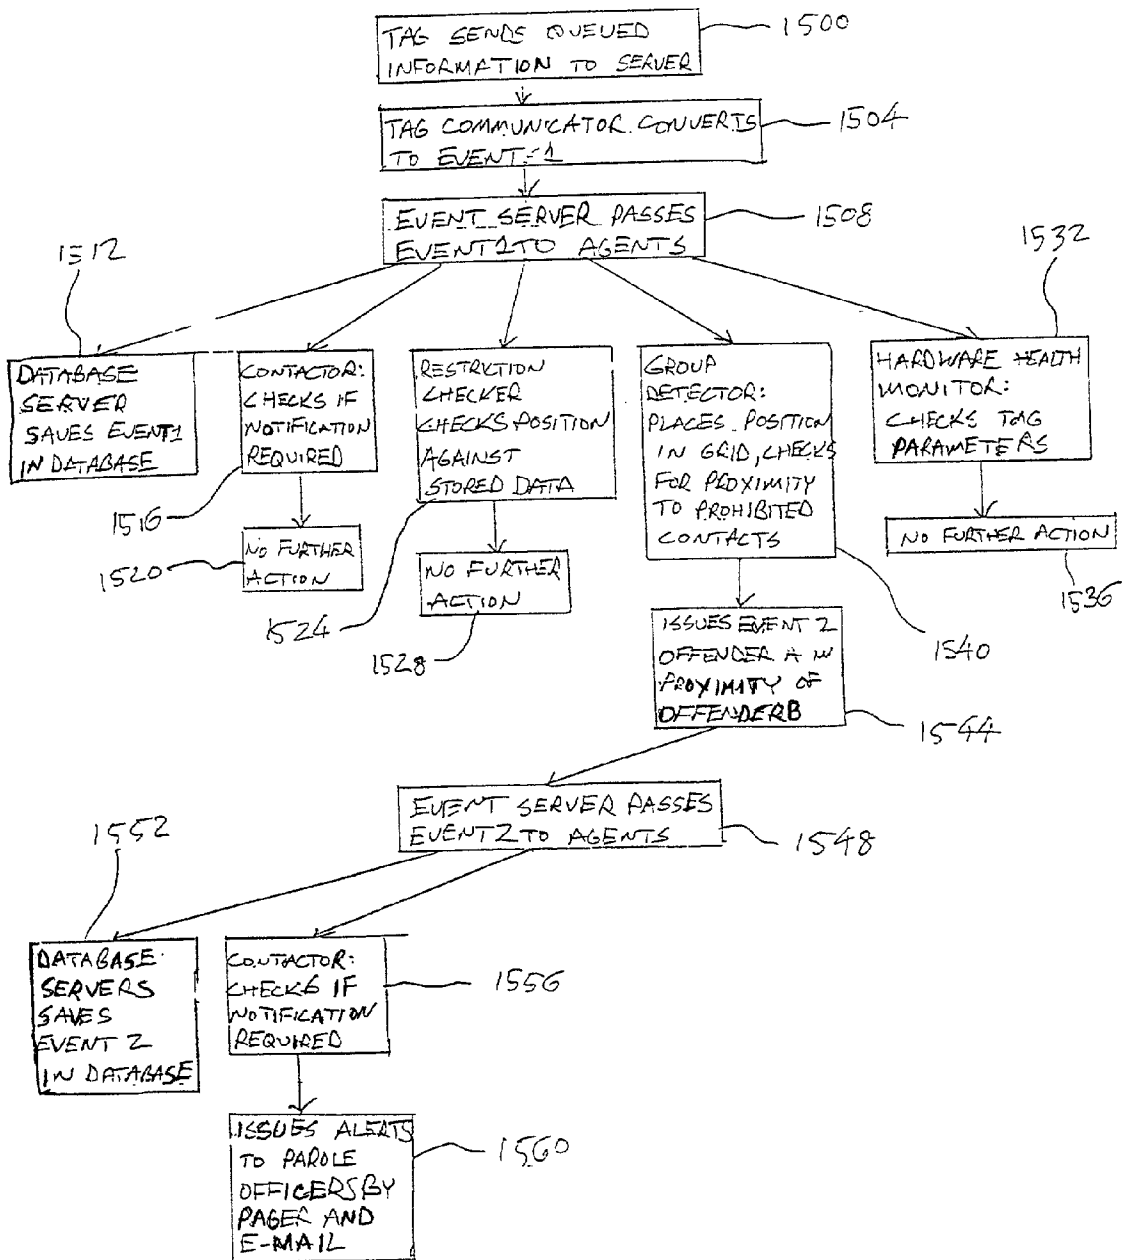 TAG SENDS QUEUED
INFORMATION TO SERVER
1500
TAG COMMUNICATOR CONVERTS
TO EVENT-1
1504
EVENT SERVER PASSES
EVENT1 TO AGENTS
1508
1512
DATABASE
SERVER
SAVES EVENT1
IN DATABASE
CONTACTOR:
CHECKS IF
NOTIFICATION
REQUIRED
1516
NO FURTHER
ACTION
1520
RESTRICTION
CHECKER
CHECKS POSITION
AGAINST
STORED DATA
1524
NO FURTHER
ACTION
1528
GROUP
DETECTOR:
PLACES POSITION
IN GRID, CHECKS
FOR PROXIMITY
TO PROHIBITED
CONTACTS
1540
1532
HARDWARE HEALTH
MONITOR:
CHECKS TAG
PARAMETERS
NO FURTHER ACTION
1536
ISSUES EVENT 2
OFFENDER A IN
PROXIMITY OF
OFFENDER B
1544
EVENT SERVER PASSES
EVENT 2 TO AGENTS
1548
1552
DATABASE
SERVERS
SAVES
EVENT 2
IN DATABASE
CONTACTOR:
CHECKS IF
NOTIFICATION
REQUIRED
1556
ISSUES ALERTS
TO PAROLE
OFFICERS BY
PAGER AND
E-MAIL
1560